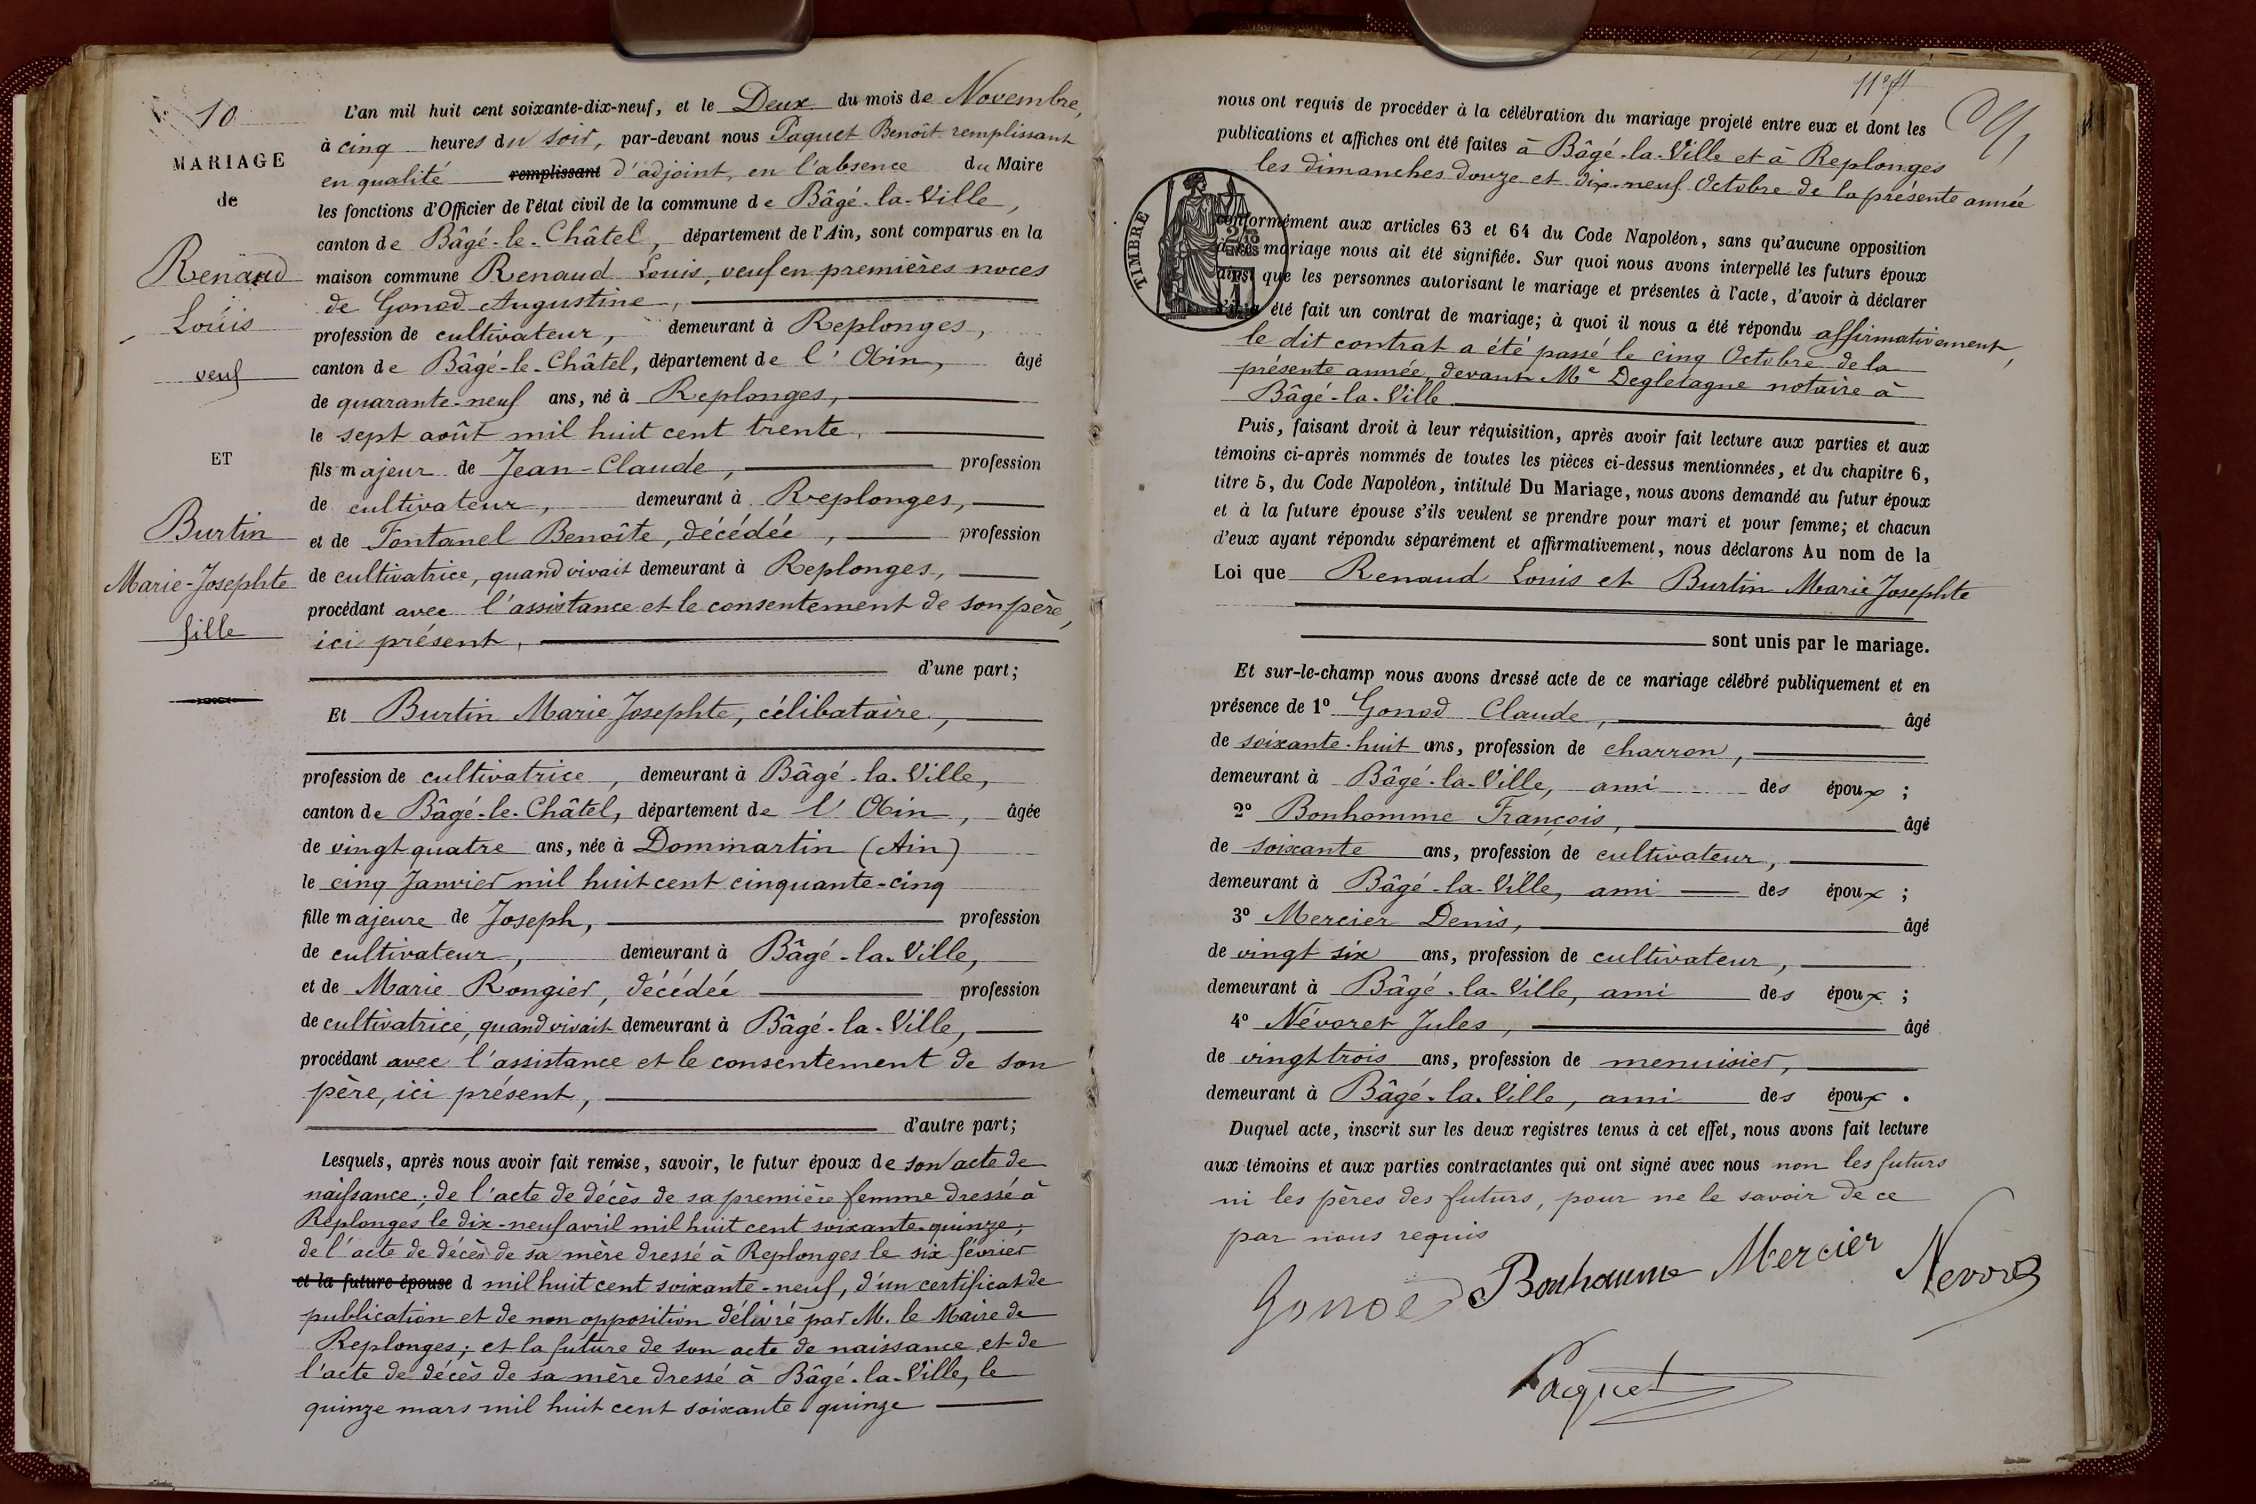 N° 10
MARIAGE
de
Renaud
Louis
veuf
ET
Burtin
Marie-Josephte
fille
L'an mil huit cent soixante-dix-neuf, et le Deux du mois de Novembre,
à cinq heures du soir, par-devant nous Paquet Benoît remplissant
en qualité remplissant d'adjoint, en l'absence du Maire
les fonctions d'Officier de l'état civil de la commune de Bâgé-la-Ville,
canton de Bâgé-le-Châtel, département de l'Ain, sont comparus en la
maison commune Renaud Louis, veuf en premières noces
de Gonod Augustine,
profession de cultivateur, demeurant à Replonges,
canton de Bâgé-le-Châtel, département de l'Ain, âgé
de quarante-neuf ans, né à Replonges,
le sept août mil huit cent trente,
fils majeur de Jean-Claude, profession
de cultivateur, demeurant à Replonges,
et de Fontanel Benoîte, décédée, profession
de cultivatrice, quand vivait demeurant à Replonges,
procédant avec l'assistance et le consentement de son père,
ici présent,
d'une part;
Et Burtin Marie Josephte, célibataire,
profession de cultivatrice, demeurant à Bâgé-la-Ville,
canton de Bâgé-le-Châtel, département de l'Ain, âgée
de vingt quatre ans, née à Dommartin (Ain)
le cinq Janvier mil huit cent cinquante-cinq
fille majeure de Joseph, profession
de cultivateur, demeurant à Bâgé-la-Ville,
et de Marie Rongier, décédée profession
de cultivatrice, quand vivait demeurant à Bâgé-la-Ville,
procédant avec l'assistance et le consentement de son
père, ici présent,
d'autre part;
Lesquels, après nous avoir fait remise, savoir, le futur époux de son acte de
naissance; de l'acte de décès de sa première femme dressé à
Replonges le dix-neuf avril mil huit cent soixante-quinze;
de l'acte de décès de sa mère dressé à Replonges le six février
et la future épouse d mil huit cent soixante-neuf, d'un certificat de
publication et de non opposition délivré par M. le Maire de
Replonges; et la future de son acte de naissance et de
l'acte de décès de sa mère dressé à Bâgé-la-Ville, le
quinze mars mil huit cent soixante-quinze
nous ont requis de procéder à la célébration du mariage projeté entre eux et dont les
publications et affiches ont été faites à Bâgé-la-Ville et à Replonges
les dimanches douze et dix-neuf Octobre de la présente année
TIMBRE
conformément aux articles 63 et 64 du Code Napoléon, sans qu'aucune opposition
à ce mariage nous ait été signifiée. Sur quoi nous avons interpellé les futurs époux
ainsi que les personnes autorisant le mariage et présentes à l'acte, d'avoir à déclarer
s'il a été fait un contrat de mariage; à quoi il nous a été répondu affirmativement,
le dit contrat a été passé le cinq Octobre de la
présente année, devant Me Degletagne notaire à
Bâgé-la-Ville
Puis, faisant droit à leur réquisition, après avoir fait lecture aux parties et aux
témoins ci-après nommés de toutes les pièces ci-dessus mentionnées, et du chapitre 6,
titre 5, du Code Napoléon, intitulé Du Mariage, nous avons demandé au futur époux
et à la future épouse s'ils veulent se prendre pour mari et pour femme; et chacun
d'eux ayant répondu séparément et affirmativement, nous déclarons Au nom de la
Loi que Renaud Louis et Burtin Marie Josephte
sont unis par le mariage.
Et sur-le-champ nous avons dressé acte de ce mariage célébré publiquement et en
présence de 1° Gonod Claude, âgé
de soixante-huit ans, profession de charron,
demeurant à Bâgé-la-Ville, ami des époux;
2° Bonhomme François, âgé
de soixante ans, profession de cultivateur,
demeurant à Bâgé-la-Ville, ami des époux;
3° Mercier Denis, âgé
de vingt six ans, profession de cultivateur,
demeurant à Bâgé-la-Ville, ami des époux;
4° Névoret Jules, âgé
de vingt trois ans, profession de menuisier,
demeurant à Bâgé-la-Ville, ami des époux.
Duquel acte, inscrit sur les deux registres tenus à cet effet, nous avons fait lecture
aux témoins et aux parties contractantes qui ont signé avec nous non les futurs
ni les pères des futurs, pour ne le savoir de ce
par nous requis
Gonod Bonhomme Mercier Nevoret
Pacquet